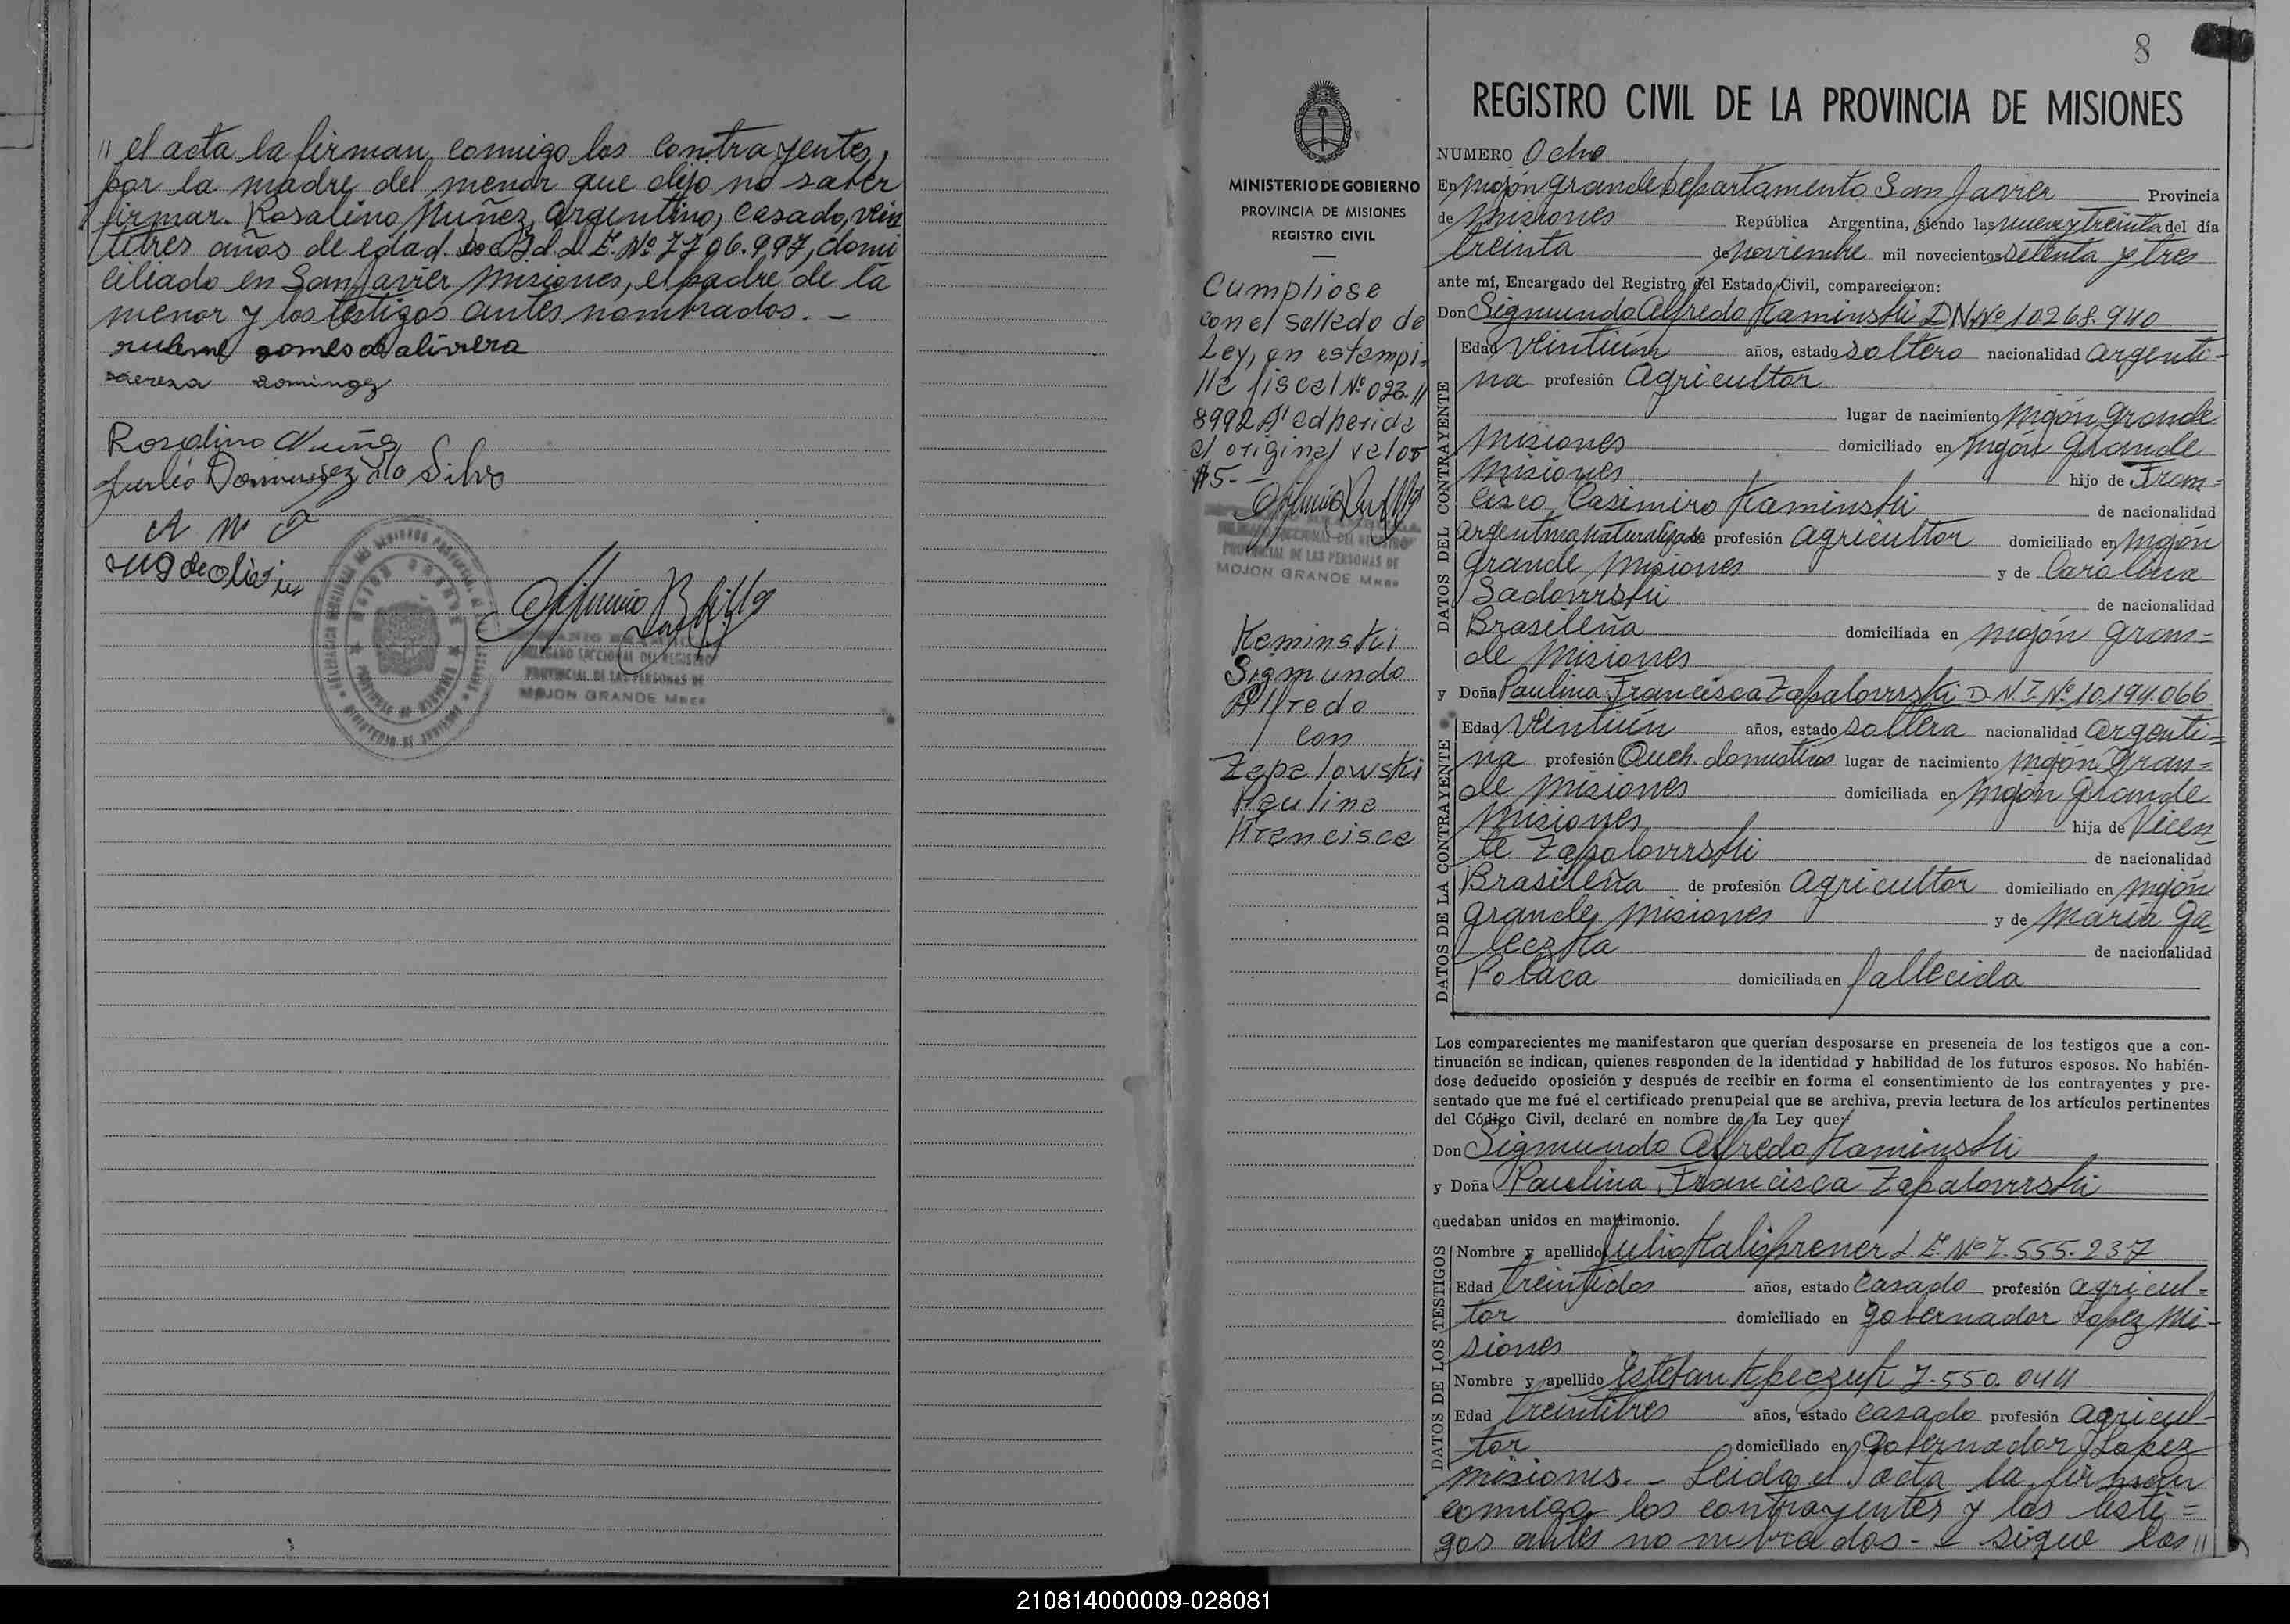 " el acta la firman conmigo los contrayentes,
por la madre del menor que dijo no saber
firmar. Rosalino Nuñez, argentino, casado, vein
titres años de edad. L.E. Nº 7706.997, domi
ciliado en San Javier Misiones, el padre de la
menor y los testigos antes nombrados. -
Rosalino Nuñez
Julio Dominguez da Silva
MOJON GRANDE Mnes
8
MINISTERIO DE GOBIERNO
PROVINCIA DE MISIONES
REGISTRO CIVIL
Cumpliose
con el sellado de
Ley, en estampi-
lla fiscal Nº 023.//
8992 A' adherida
al original valor
$5.-
DELEGADO SECCIONAL DEL REGISTRO
PROVINCIAL DE LAS PERSONAS DE
MOJON GRANDE Mnes
Kaminski
Sigmundo
Alfredo
con
Zapalowski
Paulina
Francisca
REGISTRO CIVIL DE LA PROVINCIA DE MISIONES
NUMERO Ocho
En Mojón grande Departamento San Javier Provincia
de Misiones República Argentina, siendo las nueve y treinta del día
treinta de noviembre mil novecientos setenta y tres
ante mí, Encargado del Registro del Estado Civil, comparecieron:
Don Sigmundo Alfredo Kaminski DNI Nº 10268.940
DATOS DEL CONTRAYENTE
Edad Veintiún años, estado soltero nacionalidad argenti-
na profesión Agricultor
lugar de nacimiento Mojón grande
Misiones domiciliado en Mojón grande
Misiones hijo de Fran=
cisco Casimiro Kaminski de nacionalidad
argentina naturalizado profesión agricultor domiciliado en Mojón
grande Misiones y de Carolina
Sadowski de nacionalidad
Brasileña domiciliada en Mojón gran=
de Misiones
y Doña Paulina Francisca Zapalowski D.N.I. Nº 10.194.066
DATOS DE LA CONTRAYENTE
Edad Veintiún años, estado soltera nacionalidad argenti=
na profesión Queh. domésticos lugar de nacimiento Mojón Gran=
de Misiones domiciliada en Mojón grande
Misiones hija de Vicen
te Zapalowski de nacionalidad
Brasileña de profesión Agricultor domiciliado en Mojón
grande, Misiones y de María Ga
leczka de nacionalidad
Polaca domiciliada en fallecida
Los comparecientes me manifestaron que querían desposarse en presencia de los testigos que a con-
tinuación se indican, quienes responden de la identidad y habilidad de los futuros esposos. No habién-
dose deducido oposición y después de recibir en forma el consentimiento de los contrayentes y pre-
sentado que me fué el certificado prenupcial que se archiva, previa lectura de los artículos pertinentes
del Código Civil, declaré en nombre de la Ley que:
Don Sigmundo Alfredo Kaminski
y Doña Paulina Francisca Zapalowski
quedaban unidos en matrimonio.
DATOS DE LOS TESTIGOS
Nombre y apellido Julio L.E. Nº 7.555.237
Edad treintidos años, estado casado profesión agricul=
tor domiciliado en gobernador Lopez Mi-
siones
Nombre y apellido Esteban 7.550.044
Edad treintitres años, estado casado profesión agricul-
tor domiciliado en Gobernador Lopez
Misiones. - Leida el acta la firman
conmigo los contrayentes y los testi=
gos antes nombrados - sigue las //
210814000009-028081